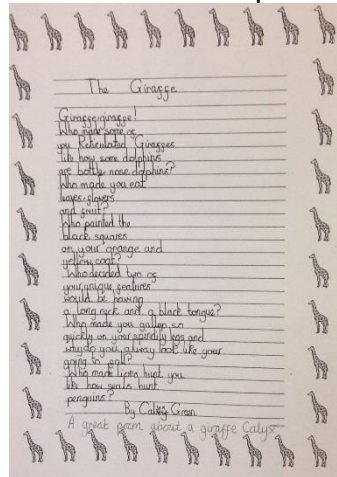 The Giraffe
Giraffe, giraffe!
Who made some of
you Reticulated Giraffes
like how some dolphins
are bottle nose dolphins?
Who made you eat
leaves, flowers
and fruit?
Who painted the
black squares
on your orange and
yellow coat?
Who decided two of
your unique features
would be having
a long neck and a black tongue?
Who made you gallop so
quickly on your spindly legs and
why do you always look like your
going to fall?
Who made lions hunt you
like how seals hunt
penguins?
By Green
A great poem about a giraffe